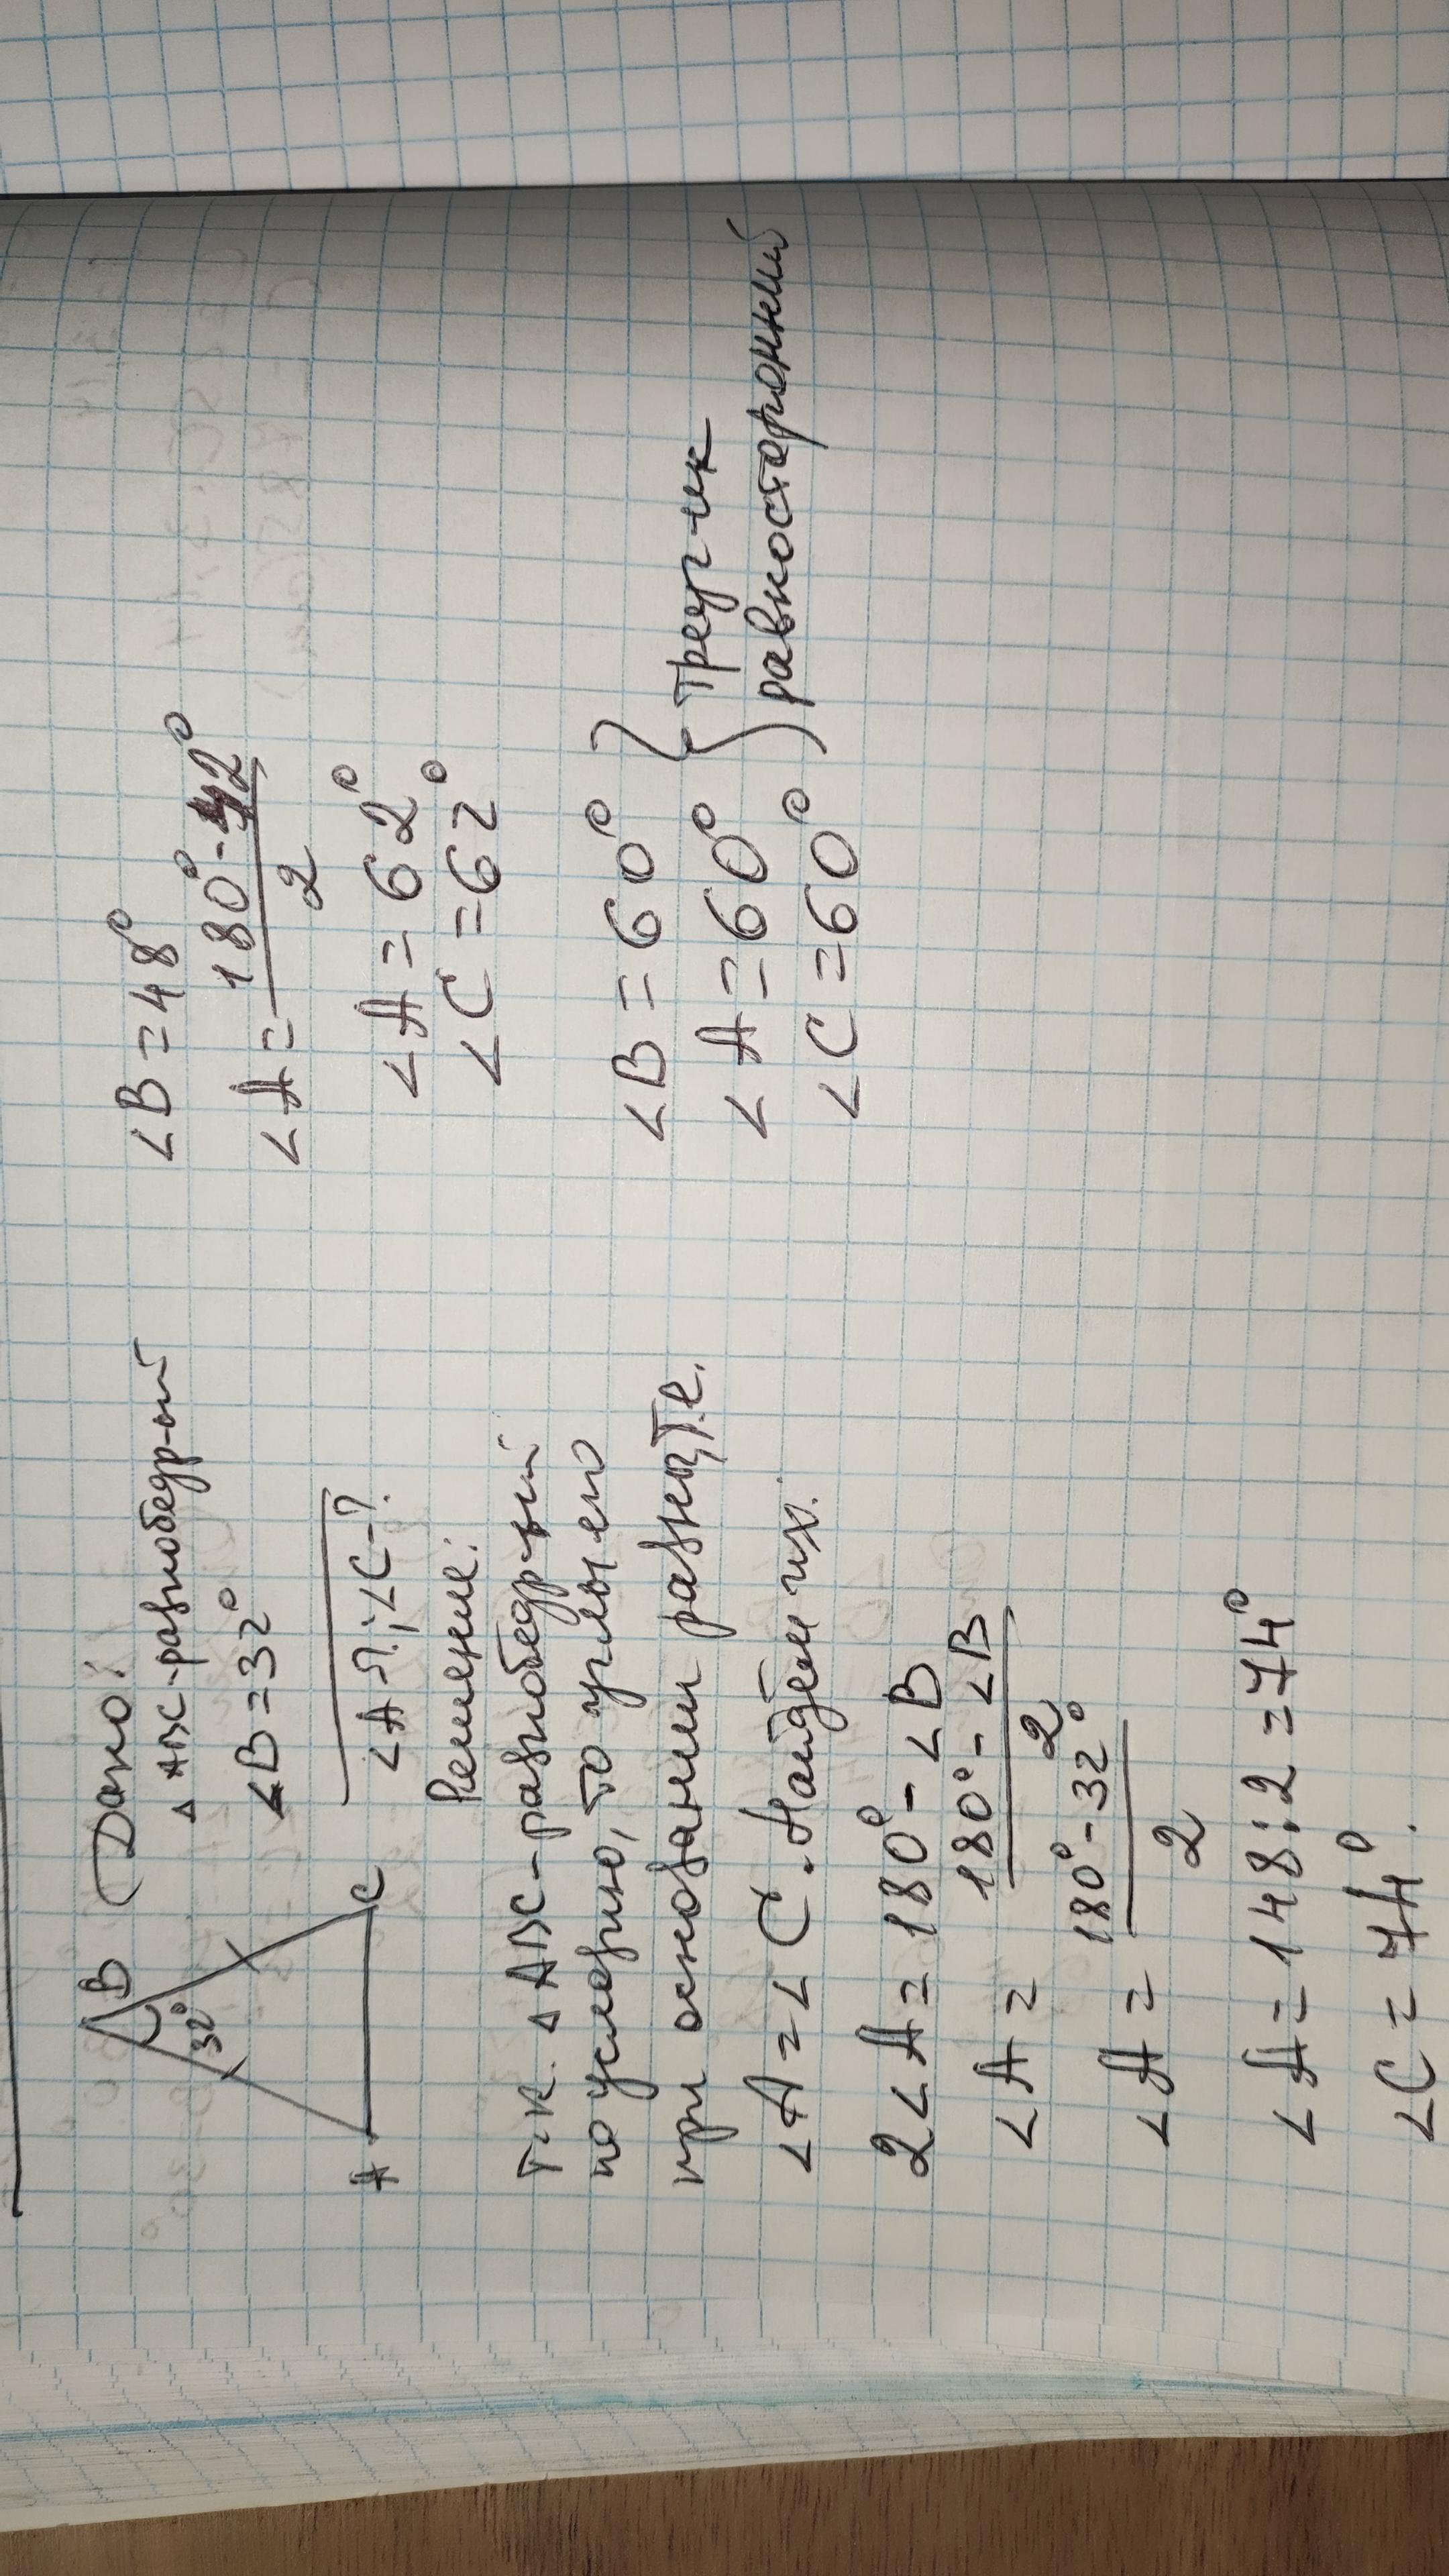 B
32°
A
C
Дано:
Δ ABC-равнобедр-ый
∠B=32°
∠A-?; ∠C-?
Решение:
Т.к. Δ ABC-равнобедр-ый
по условию, то углы его
при основании равны, т.е.
∠A=∠C. Найдём их.
2∠A=180°-∠B
∠A= 180°-∠B
2
∠A= 180°-32°
2
∠A=148:2=74°
∠C=74°.
∠B=48°
∠A= 180°-42°
2
∠A=62°
∠C=62°
∠B=60°
∠A=60°
∠C=60°
Треуг-ик
равносторонний